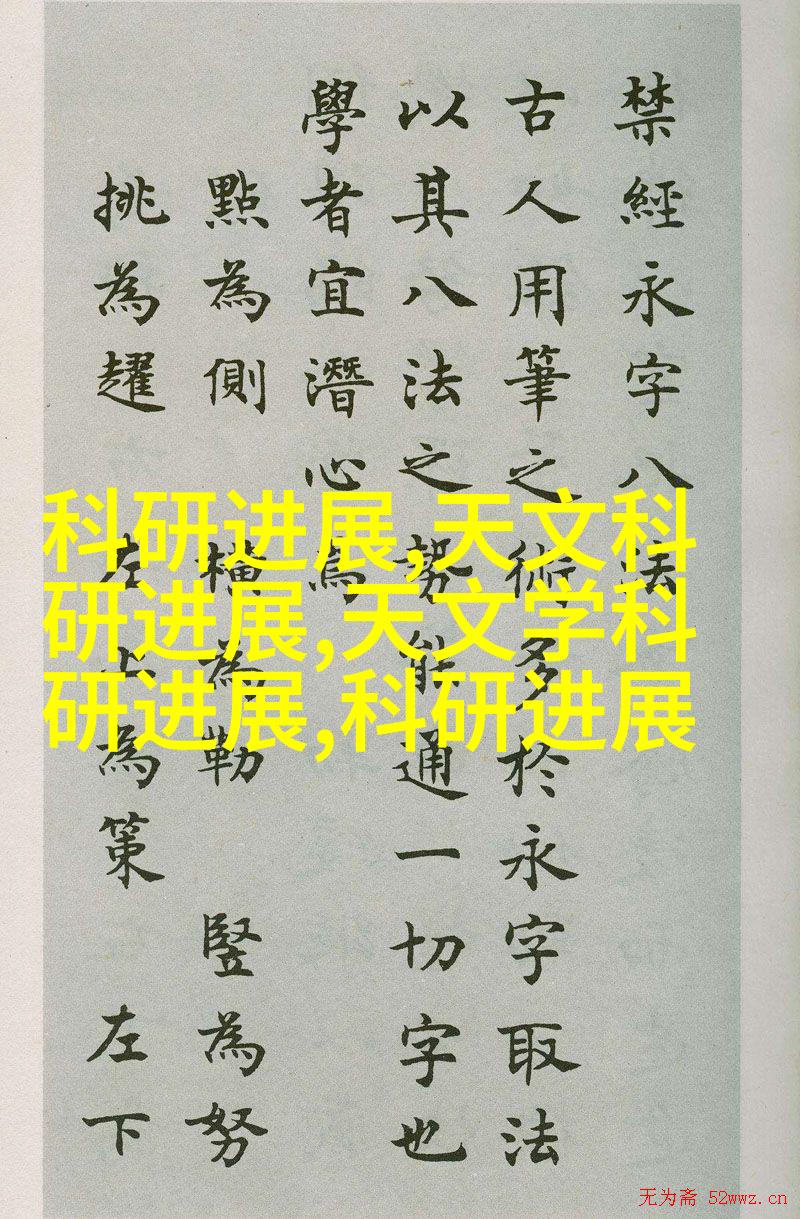 禁經永字八法
古人用筆之術多於永字取法
以其八法之勢能通一切字也
學者宜潛心焉
點為側 橫為勒 竪為努
挑為趯 左上為策 左下
科研进展,天文科
研进展,天文学科
研进展,科研进展
无为斋 52wwz.cn